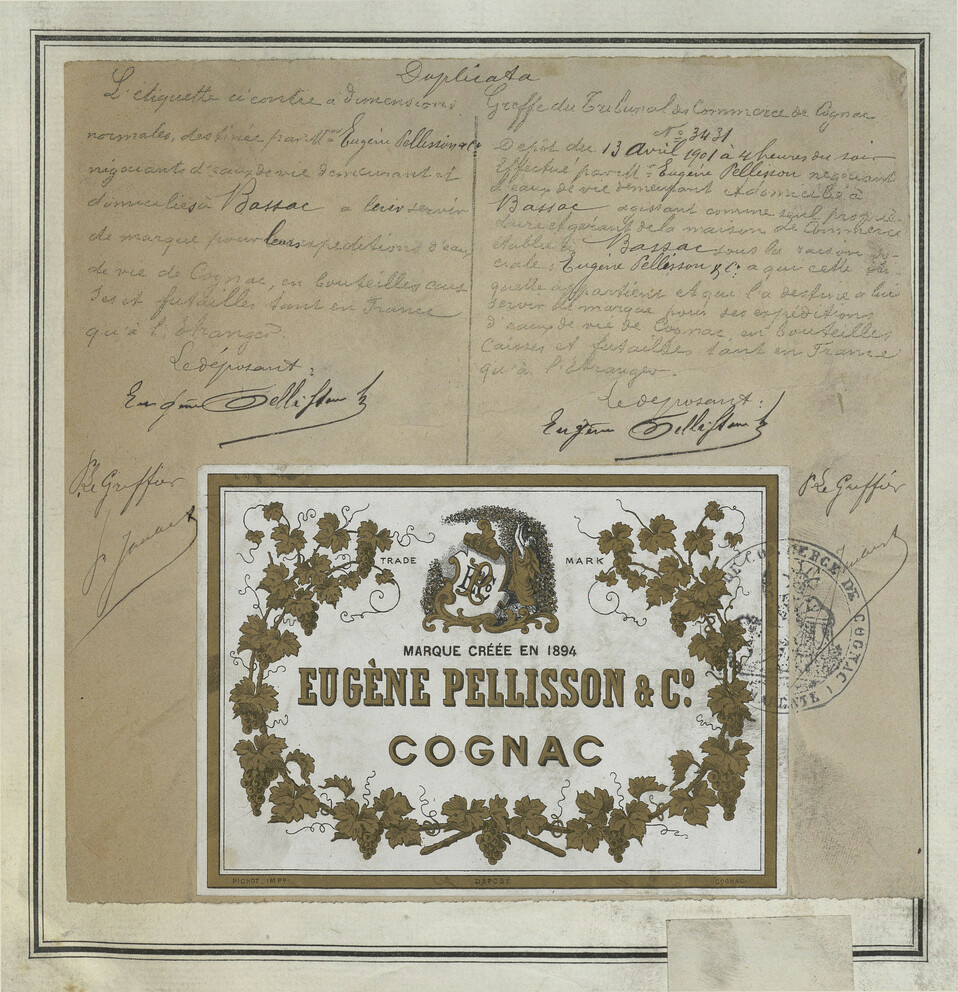 Duplicata
L'étiquette ci contre à dimensions
normales, destinée par Mr Eugène Pellisson & Cie
négociant d'eaux de vie demeurant et
domiciliés à Bassac a leur servir
de marque pour leurs expéditions d'eaux
de vie de Cognac, en bouteilles cais-
ses et futailles tant en France
qu'à l'Etranger.
Le déposant:
Eugène Pellisson
P. Le Greffier
Greffe du Tribunal de Commerce de Cognac
No 3431
Depôt du 13 Avril 1901 à 4 heures du soir
Effectué par Mr Eugène Pellisson négociant
d'eaux de vie demeurant et domicilié à
Bassac agissant comme seul proprié-
taire et gérant de la maison de Commerce
établie à Bassac sous la raison so-
ciale: Eugène Pellisson & Cie a qui cette éti-
quette appartient et qui l'a destiné a lui
servir de marque pour ses expéditions
d'eaux de vie de Cognac en bouteilles
caisses et futailles tant en France
qu'à l'Etranger.
Le déposant:
Eugène Pellisson
P. Le Greffier
TRADE MARK
MARQUE CRÉÉE EN 1894
EUGÈNE PELLISSON & Co.
COGNAC
PICHOT, IMPR. DÉPOSÉ COGNAC
DE COMMERCE DE COGNAC